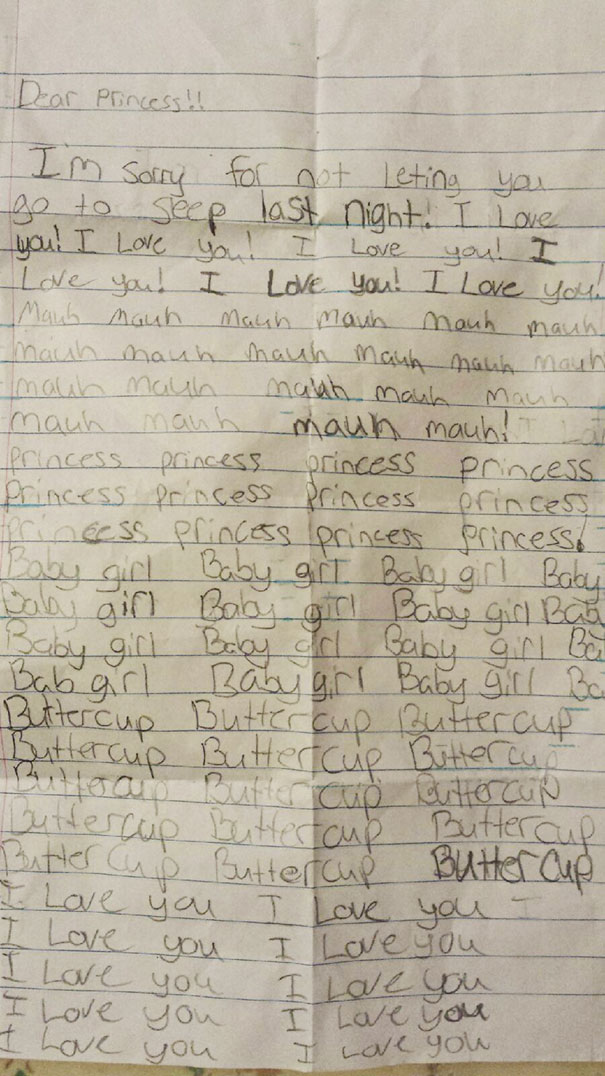 Dear Princess!!
I'm sorry for not leting you
go to sleep last night! I Love
you! I Love you! I Love you! I
Love you! I Love you! I Love you!
Mauh mauh mauh mauh mauh mauh
mauh mauh mauh mauh mauh mauh
mauh mauh mauh mauh mauh
mauh mauh mauh mauh! I
Princess princess princess princess
Princess princess princess princess
princess princess princess princess!
Baby girl Baby girl Baby girl Baby
Baby girl Baby girl Baby girl Bab
Baby girl Baby girl Baby girl Ba
Bab girl Baby girl Baby girl Ba
Buttercup Buttercup Buttercup
Buttercup Buttercup Buttercup
Buttercup Buttercup Buttercup
Buttercup Buttercup Buttercup
Buttercup Buttercup ButterCup
I Love you I Love you I
I Love you I Love you
I Love you I Love you
I Love you I Love you
I Love you I Love you